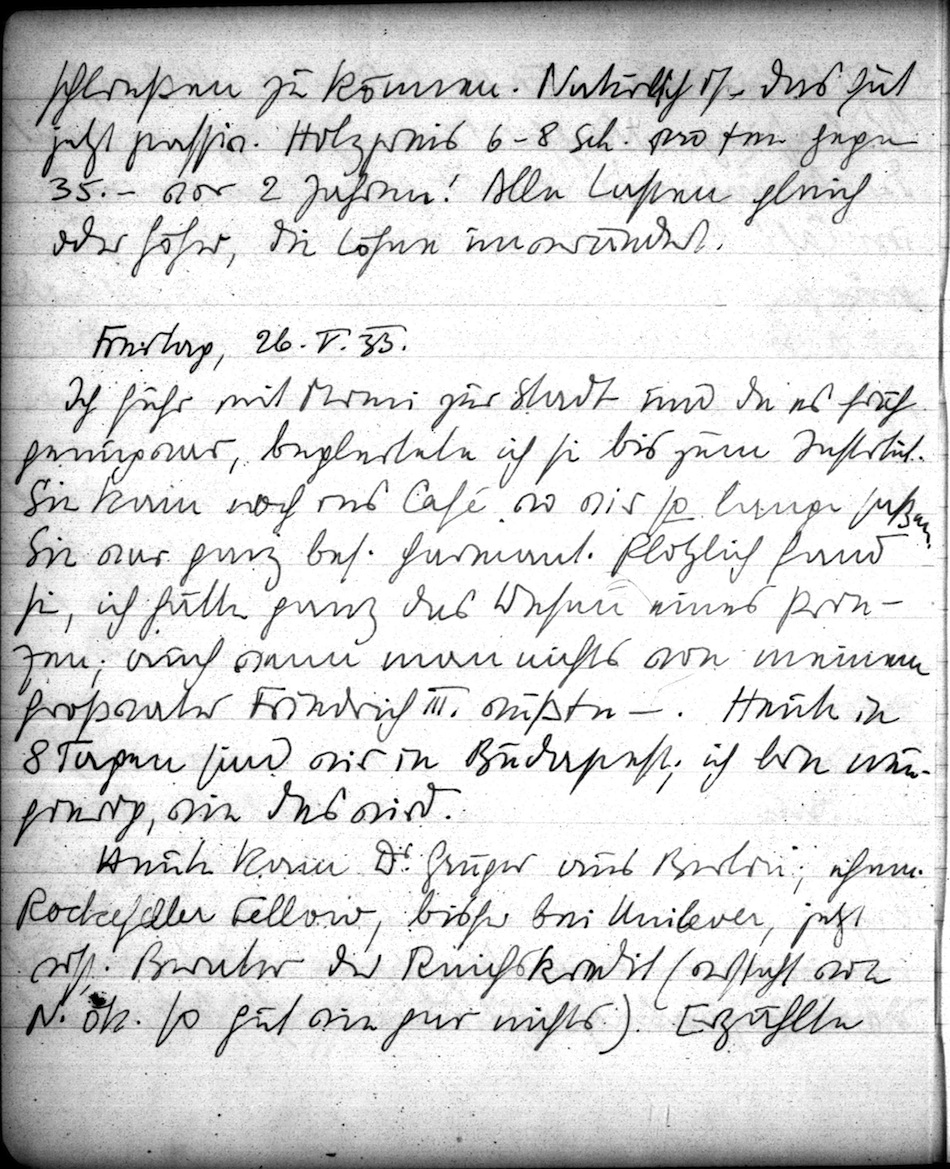 schließen zu können. Natürlich ist das Gut
jetzt passiv. Holzpreis 6-8 Sch. pro fm gegen
35.– vor 2 Jahren! Alle Lasten gleich
oder höher, die Löhne unverändert.
Freitag, 26. V. 33.
Ich fuhr mit Momi zur Stadt und da es früh
genug war, begleitete ich sie bis zum Institut.
Sie kam noch ins Café wo wir so lange saßen.
Sie war ganz bes. charmant. Plötzlich fand
sie, ich hätte ganz das Wesen eines Prin-
zen; auch wenn man nichts von meinem
Großvater Friedrich III. wüßte –. Heute in
8 Tagen sind wir in Budapest; ich bin neu-
gierig, wie das wird.
Heute kam Dr. aus Berlin; ehem.
Rockefeller Fellow, bisher bei Unilever, jetzt
wiss. Berater der Reichskredit (versteht von
N. ök. so gut wie gar nichts.). Erzählte